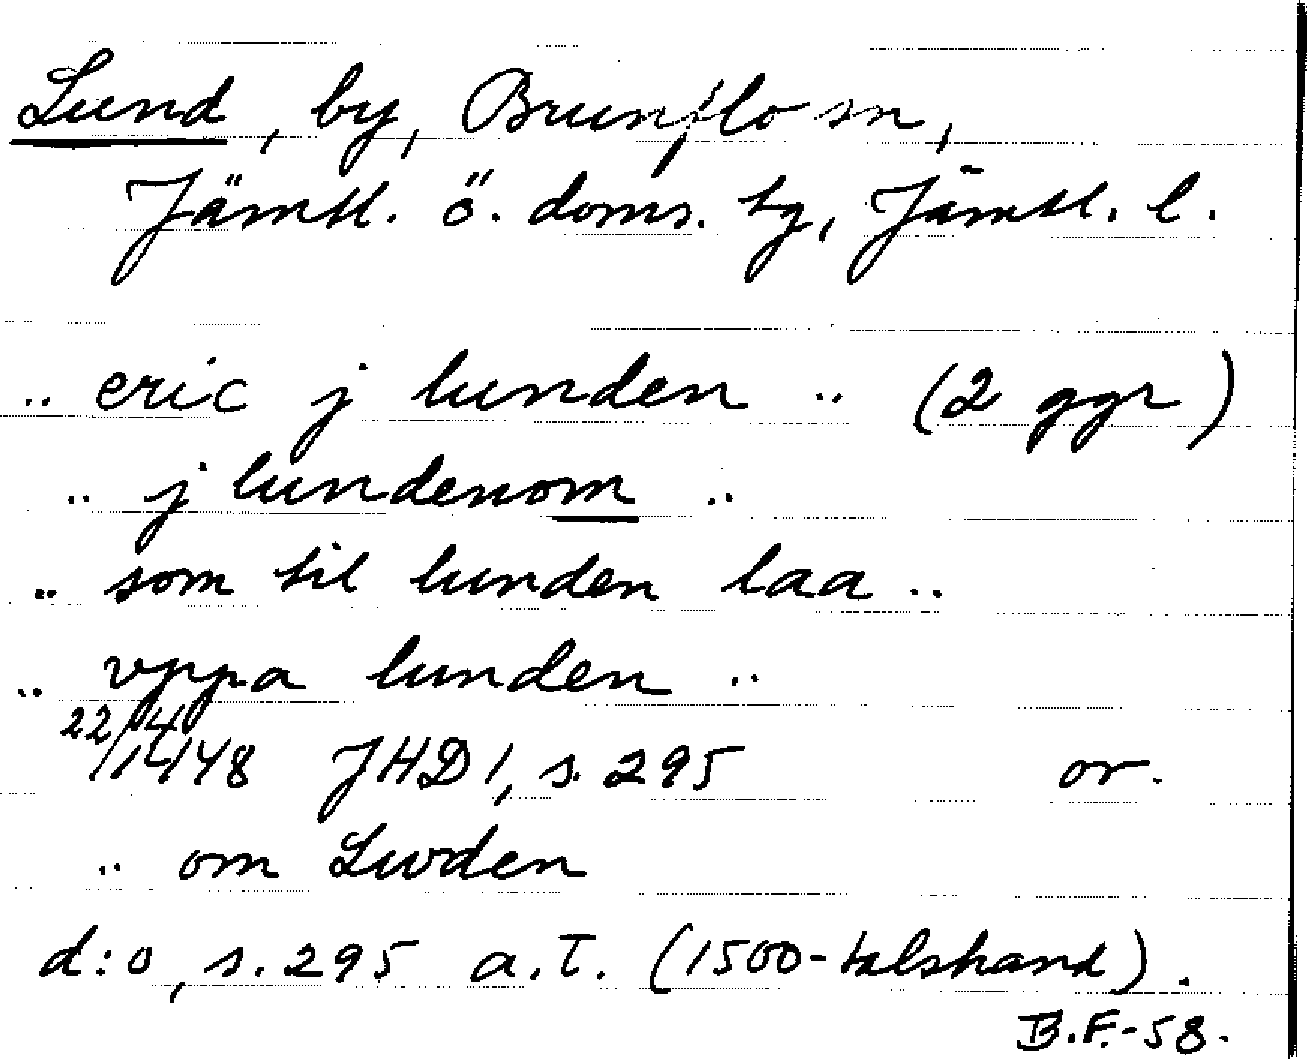 Lund, by, Brunflo sn,
Jämtl. ö. doms. tg, Jämtl. l.
.. eric j lunden .. (2 ggr)
.. j lundenom ..
.. som til lunden laa ..
.. vppa lunden ..
22/4 1448 JHD 1, s. 295 or.
.. om Lwden
d:o, s. 295 a.T. (1500-talshand).
B.F.-58.